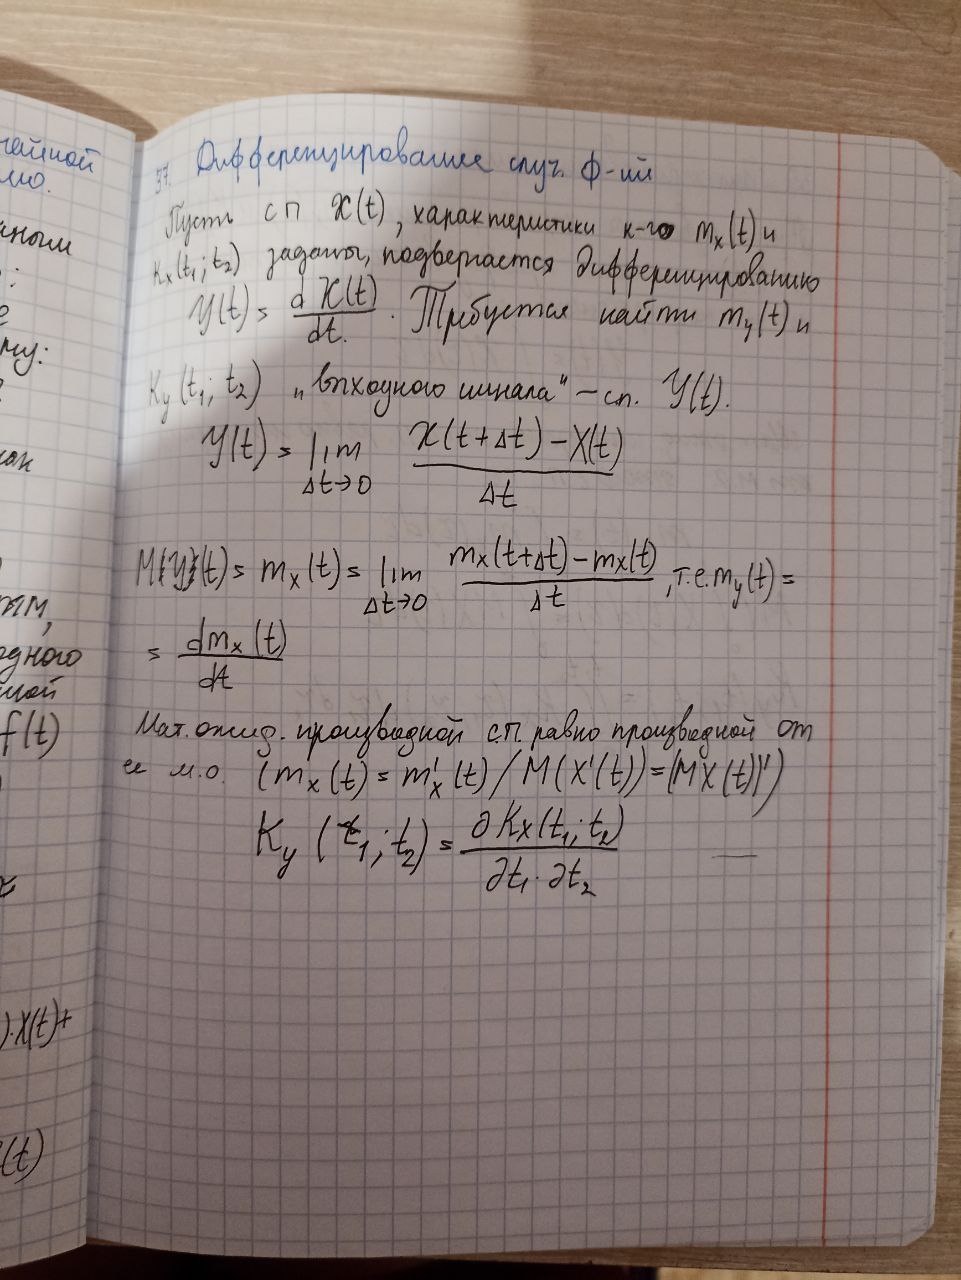 чайной
ию.
нным
му:
f(t)
).X(t)+
(t)
37. Дифференцирование случ. ф-ий
Пусть СП X(t), характеристики к-го mₓ(t) и
Kₓ(t₁; t₂) заданы, подвергается дифференцированию
Y(t) = dX(t)/dt. Требуется найти m_y(t) и
K_y(t₁; t₂) „выходного сигнала" – сп. Y(t).
Y(t) = lim Δt→0 X(t+Δt) – X(t) / Δt
M{Y}(t) = mₓ(t) = lim Δt→0 mₓ(t+Δt) – mₓ(t) / Δt, т.е. m_y(t) =
= dmₓ(t)/dt
Мат. ожид. производной с.п. равно производной от
ее м.о. (mₓ(t) = m'ₓ(t) / M(X'(t)) = (MX(t))')
K_y (t₁; t₂) = ∂Kₓ(t₁; t₂) / ∂t₁·∂t₂